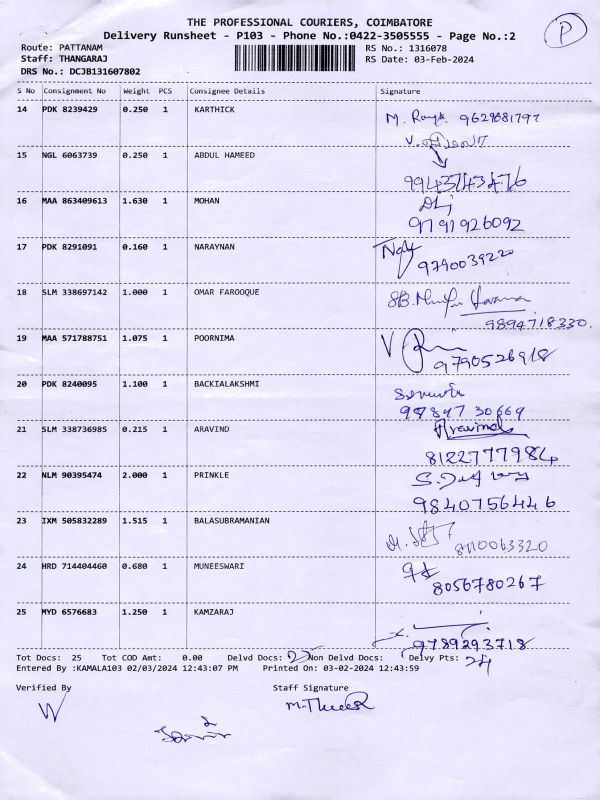 THE PROFESSIONAL COURIERS, COIMBATORE
Delivery Runsheet - P103 - Phone No.:0422-3505555 - Page No.:2
P
Route: PATTANAM RS No.: 1316078
Staff: THANGARAJ RS Date: 03-Feb-2024
DRS No.: DCJB131607802
S No Consignment No Weight PCS Consignee Details Signature
14 PDK 8239429 0.250 1 KARTHICK
15 NGL 6063739 0.250 1 ABDUL HAMEED
9943743476
16 MAA 863409613 1.630 1 MOHAN
9791926092
17 PDK 8291091 0.160 1 NARAYNAN
9790039220
18 SLM 338697142 1.000 1 OMAR FAROOQUE
9894718330.
19 MAA 571788751 1.075 1 POORNIMA
9790526918
20 PDK 8240095 1.100 1 BACKIALAKSHMI
21 SLM 338736985 0.215 1 ARAVIND Aravind
8122777984
22 NLM 90395474 2.000 1 PRINKLE
9840756446
23 IXM 505832289 1.515 1 BALASUBRAMANIAN
8110063320
24 HRD 714404460 0.680 1 MUNEESWARI
8056780267
25 MYD 6576683 1.250 1 KAMZARAJ
9789293718
Tot Docs: 25 Tot COD Amt: 0.00 Delvd Docs: Non Delvd Docs: Delvy Pts: 24
Entered By :KAMALA103 02/03/2024 12:43:07 PM Printed On: 03-02-2024 12:43:59
Verified By Staff Signature